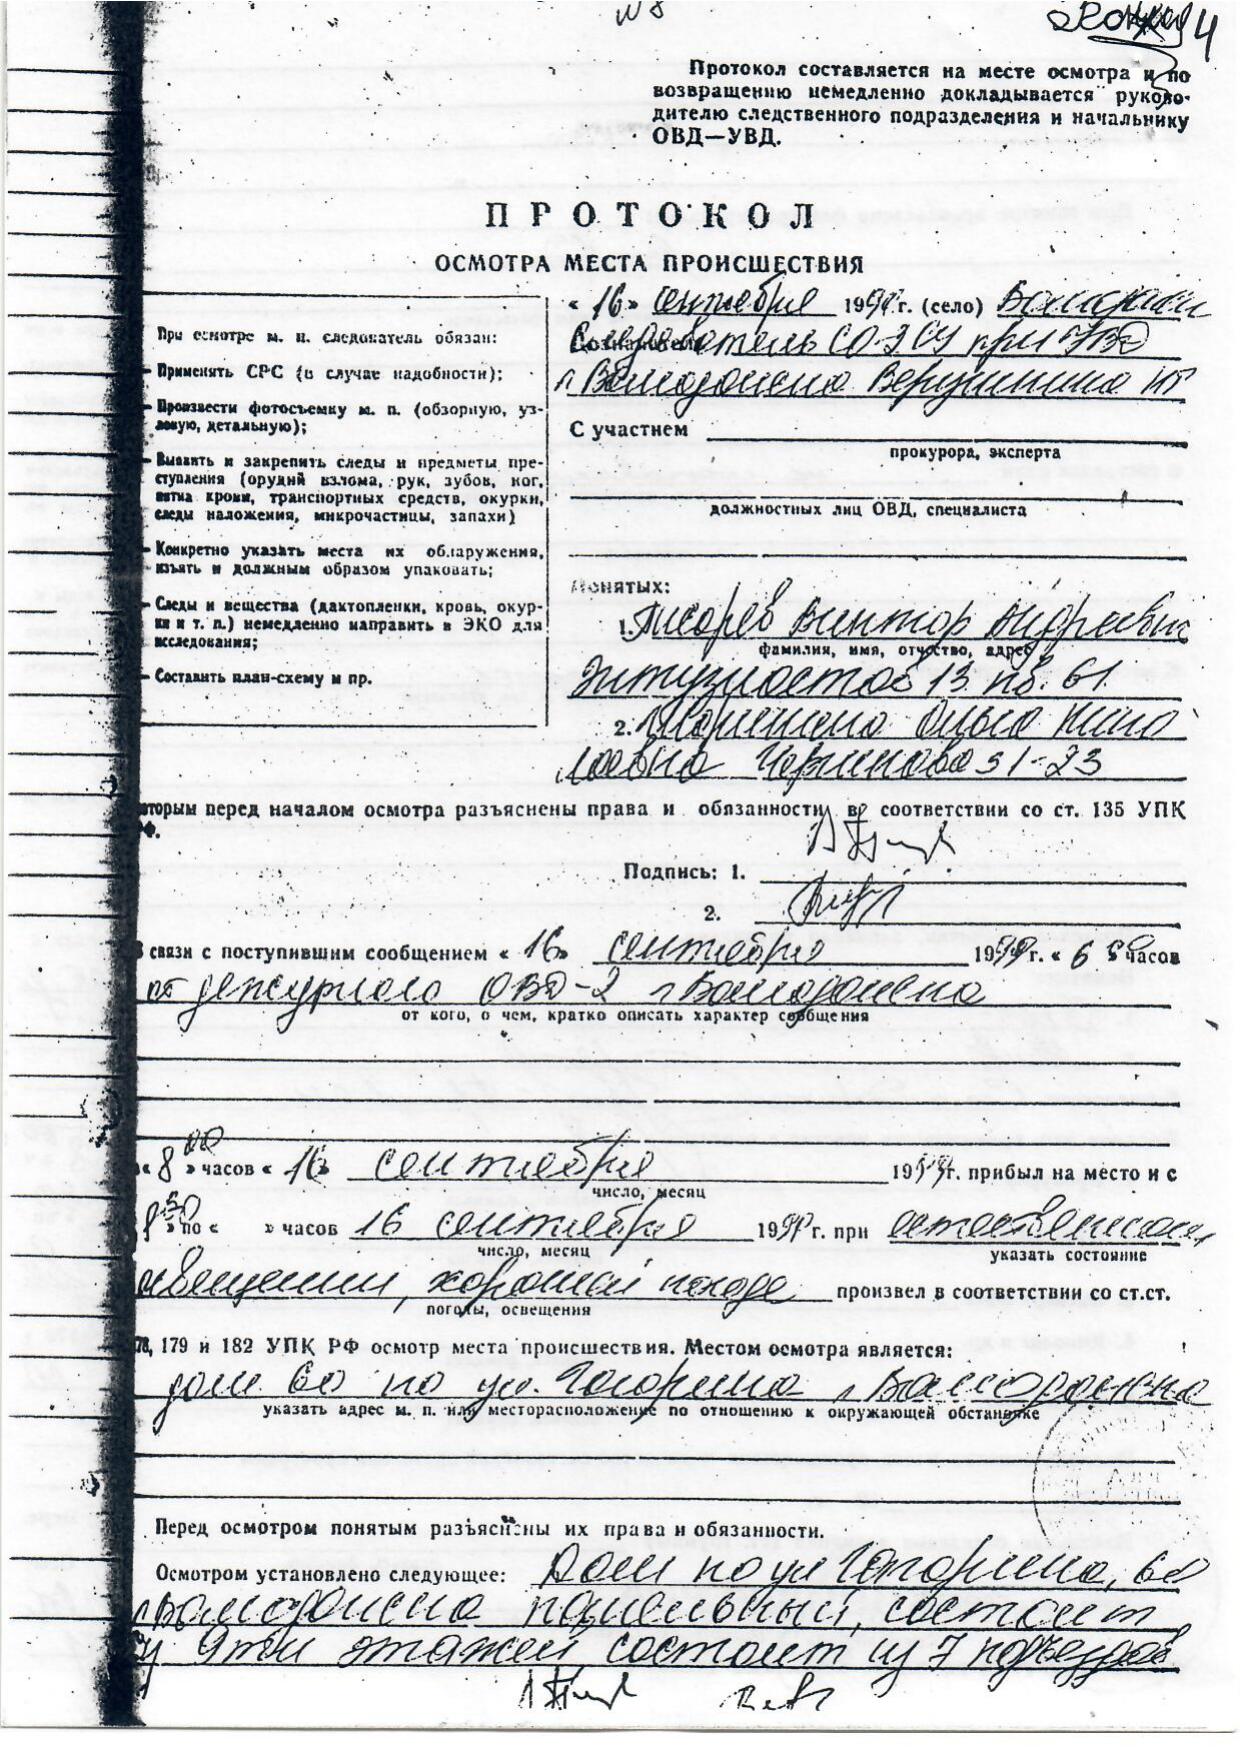 № 8
4
Протокол составляется на месте осмотра и по
возвращению немедленно докладывается руково-
дителю следственного подразделения и начальнику
ОВД—УВД.
ПРОТОКОЛ
ОСМОТРА МЕСТА ПРОИСШЕСТВИЯ
« 16 » сентября 1999 г. (село)
Следователь СО ЗСУ при УВД
г. Волгодонска
С участием
прокурора, эксперта
должностных лиц ОВД, специалиста
При осмотре м. п. следователь обязан:
— Применять СРС (в случае надобности);
— Произвести фотосъемку м. п. (обзорную, уз-
ловую, детальную);
— Выявить и закрепить следы и предметы пре-
ступления (орудий взлома, рук, зубов, ног,
пятна крови, транспортных средств, окурки,
следы наложения, микрочастицы, запахи)
— Конкретно указать места их обнаружения,
изъять и должным образом упаковать;
— Следы и вещества (дактопленки, кровь, окур-
ки и т. п.) немедленно направить в ЭКО для
исследования;
— Составить план-схему и пр.
Понятых:
1. Писарев Виктор Андреевич
фамилия, имя, отчество, адрес
Энтузиастов 13 кв. 61
2. Ольга Нико
лаевна 31-23
которым перед началом осмотра разъяснены права и обязанности в соответствии со ст. 135 УПК
РФ.
Подпись: 1.
2.
В связи с поступившим сообщением « 16 » сентября 1999 г. « 6 часов
от дежурного ОВД-2 г. Волгодонска
от кого, о чем, кратко описать характер сообщения
« 8 00 » часов « 16 » сентября 1999 г. прибыл на место и с
число, месяц
8 30 » по « » часов 16 сентября 1999 г. при естественном
число, месяц
указать состояние
освещении, хорошей погоде произвел в соответствии со ст.ст.
погоды, освещения
178, 179 и 182 УПК РФ осмотр места происшествия. Местом осмотра является:
дом по ул. Гагарина г. Волгодонска
указать адрес м. п. или месторасположение по отношению к окружающей обстановке
Перед осмотром понятым разъяснены их права и обязанности.
Осмотром установлено следующее: Дом по ул Гагарина,
г. Волгодонска панельный, состоит
из 9ти этажей состоит из 7 подъездов